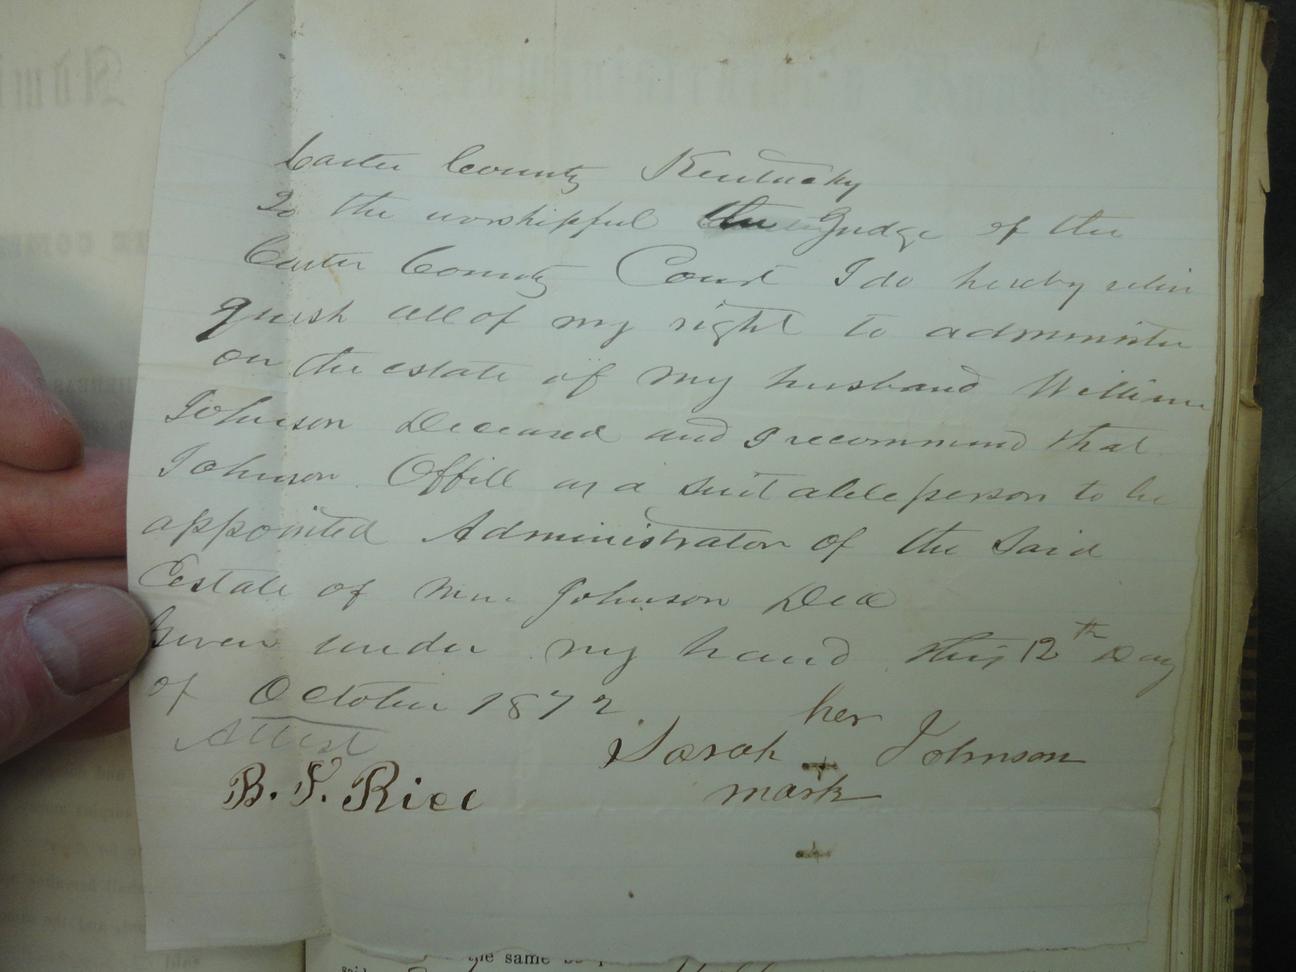 Carter County Kentucky
To the worshipful the Judge of the
Carter County Court I do hereby relin
quish all of my right to administer
on the estate of my husband William
Johnson Deceased and I recommend that
Johnson Offill as a suitable person to be
appointed Administrator of the Said
Eestate of Wm. Johnson Decd
Given under my hand this 12th Day
of October 1872
her
Attest Sarah + Johnson
B. F. Rice mark
the same